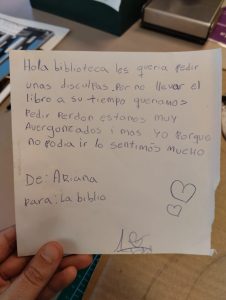 Hola biblioteca les queria pedir
unas disculpas. Por no llevar el
libro a su tiempo queriamos
Pedir Perdon estamos muy
Avergonzados i mas yo Porque
no Podia ir lo sentimós mucho
De: Ariana
para: La biblio